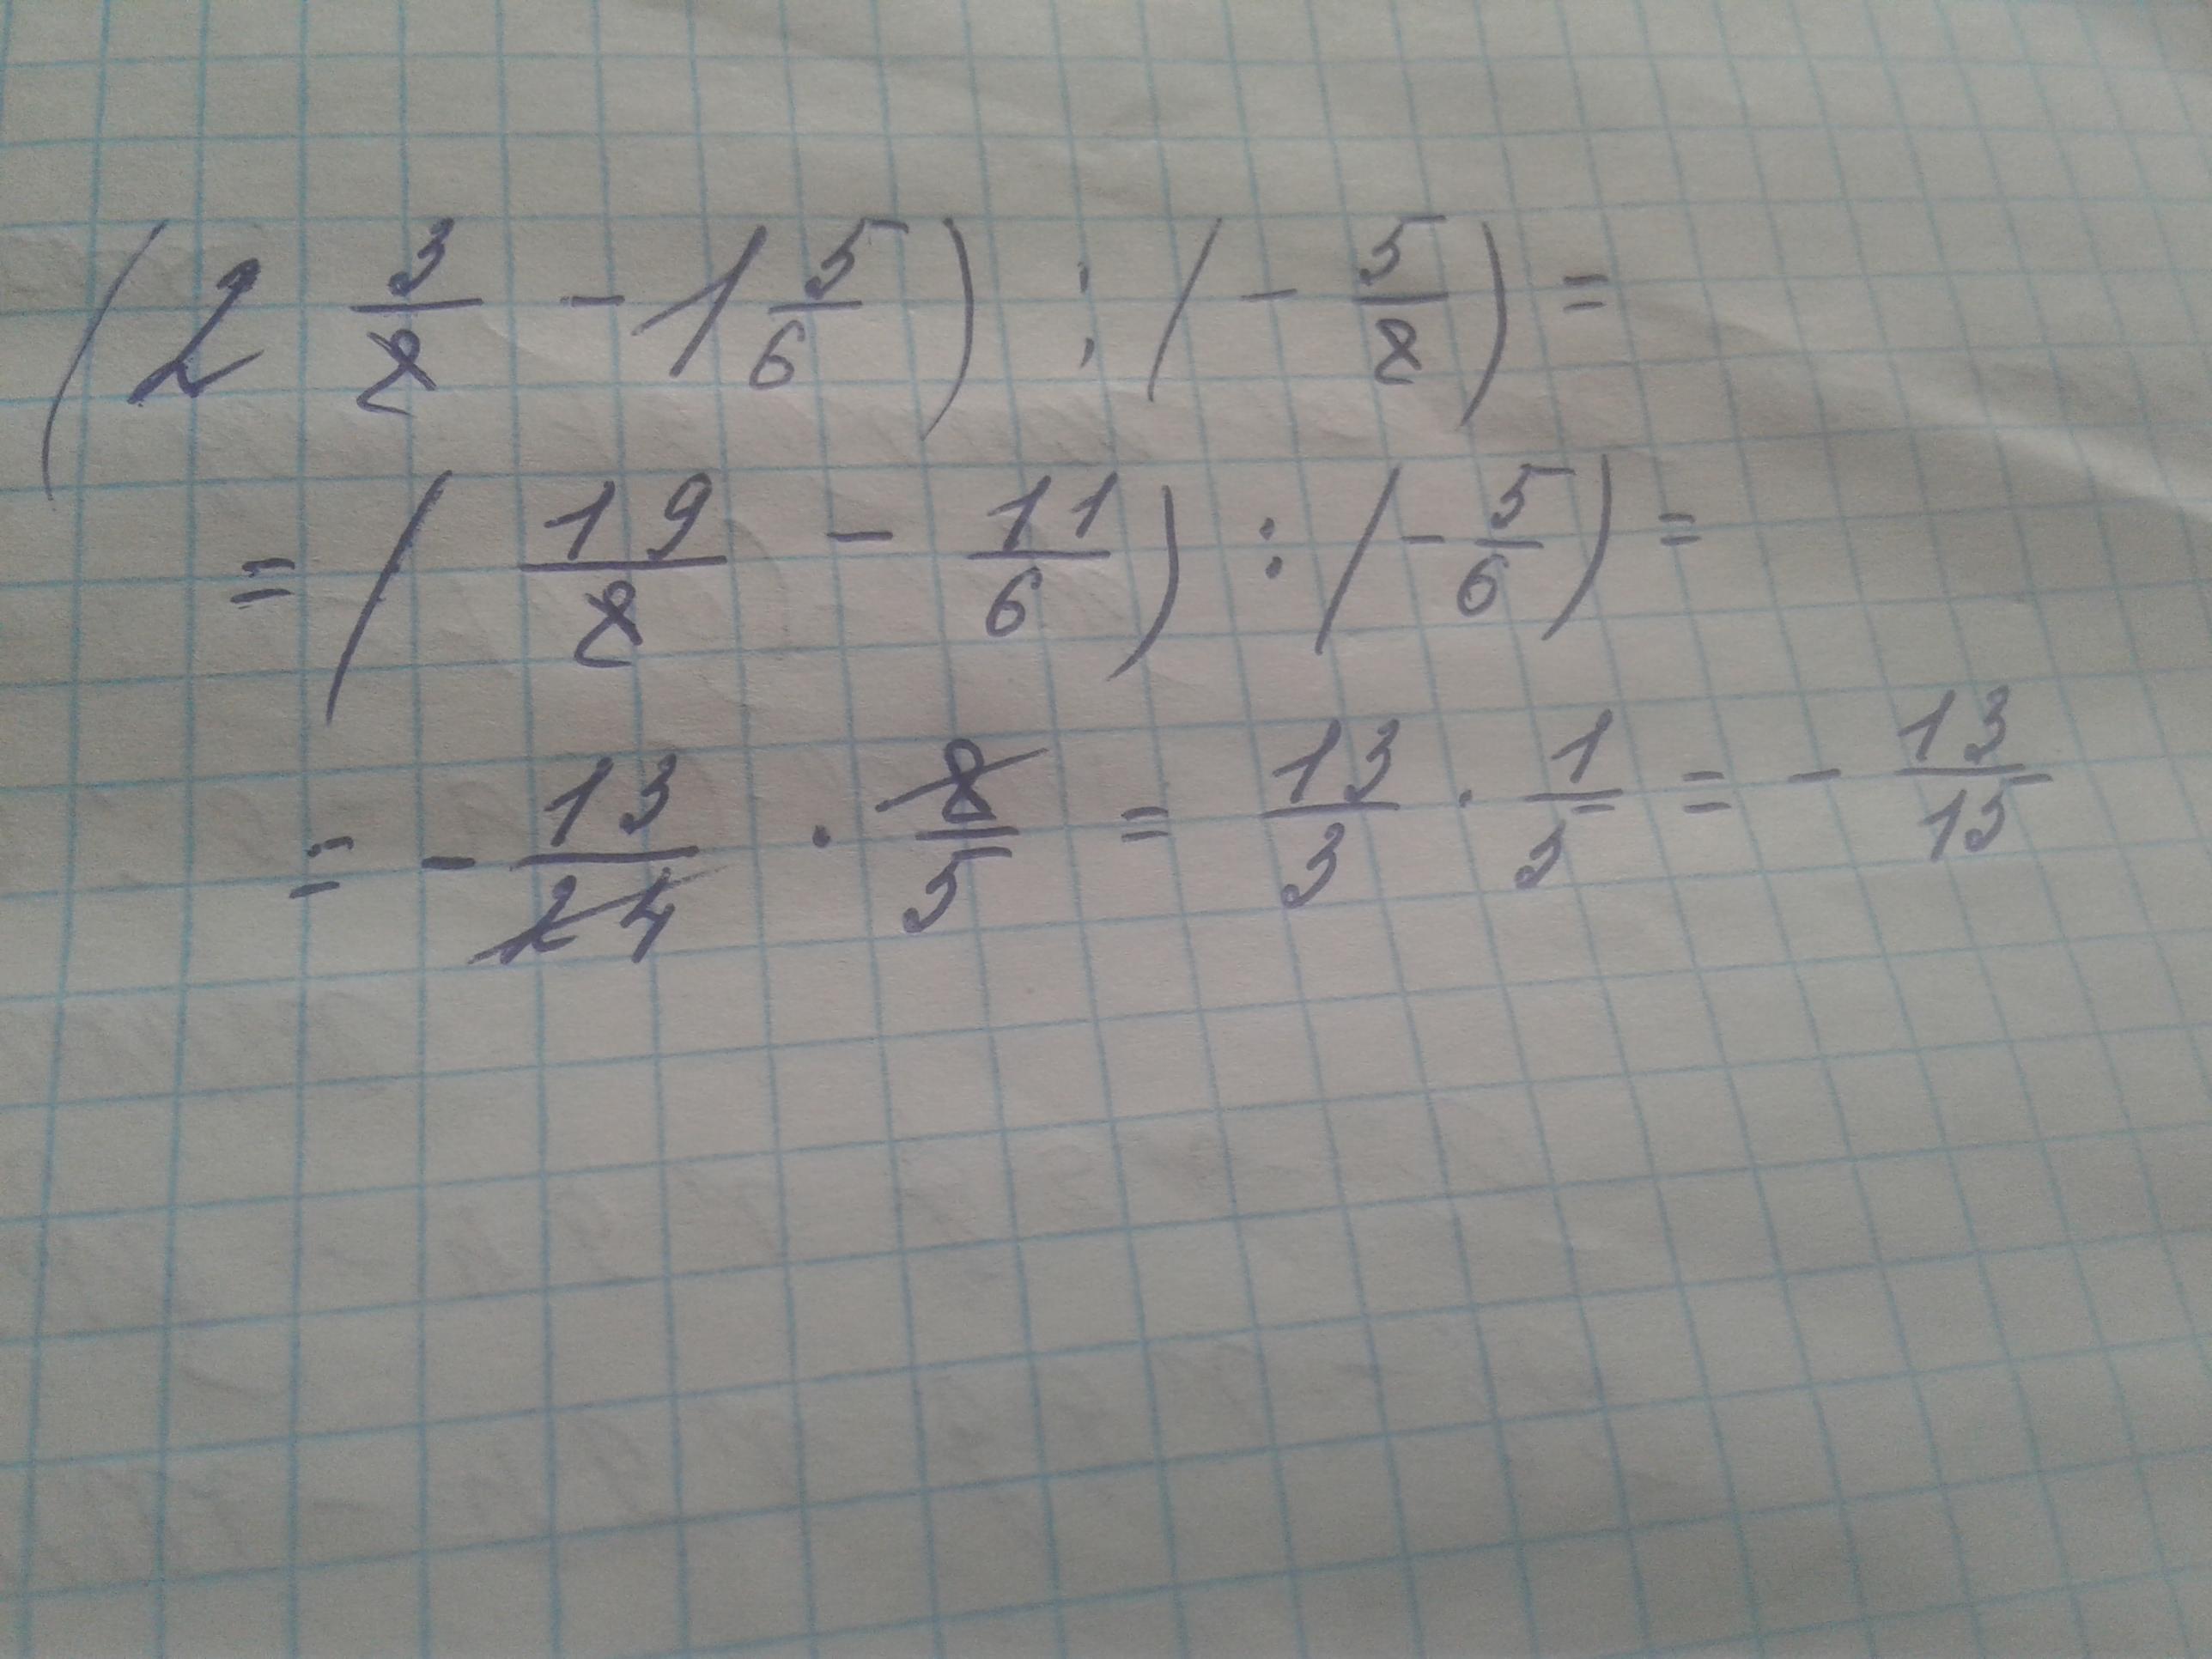 (2 3/8 - 1 5/6) : (- 5/8) =
= (19/8 - 11/6) : (- 5/6) =
= - 13/24 · 8/5 = 13/3 · 1/5 = - 13/15